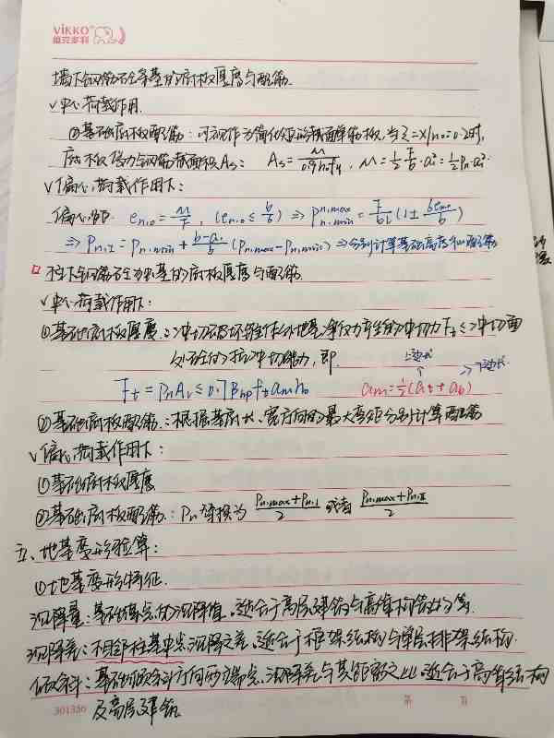 VIKKO
墙下钢筋砼条基的底板厚度与配筋.
√中心荷载作用.
②基础底板配筋: 可视作为简化矩形截面单筋板, 当ξ=x/h₀=0.2时,
底板受力钢筋截面面积As: As=M/0.9h₀fy, M=½·F/b·a₁²=½Pn·a₁²
√偏心荷载作用下:
偏心距 en,0=M/F, (en,0≤b/6) ⇒ Pn,max Pn,min=F/bl(1±6en,0/b)
⇒ Pn,I=Pn,min+(b-a₁)/b(Pn,max-Pn,min) ⇒ 分别计算基础高度和配筋
柱下钢筋砼独基的底板厚度与配筋.
√中心荷载作用下:
①基础底板厚度: 冲切破坏锥体外地基净反力产生的冲切力Fl≤冲切面
处砼的抗冲切能力, 即.
上边长 下边长.
Fl=PnAl≤0.7βhp ft am h₀ am=½(at+ab)
②基础底板配筋: 根据基底长、宽方向的最大弯矩分别计算配筋
√偏心荷载作用下:
①基础底板厚度
②基础底板配筋: Pn替换为 (Pn,max+Pn,I)/2 或者 (Pn,max+Pn,II)/2
五、地基变形验算:
①地基变形特征.
沉降量: 基础某点的沉降值. 适合于高层建筑与高耸构筑物等.
沉降差: 不同柱基中点沉降之差. 适合于框架结构与单层排架结构.
倾斜: 基础倾斜方向两端点沉降差与其距离之比. 适合于高耸结构
及高层建筑
301356 第 页